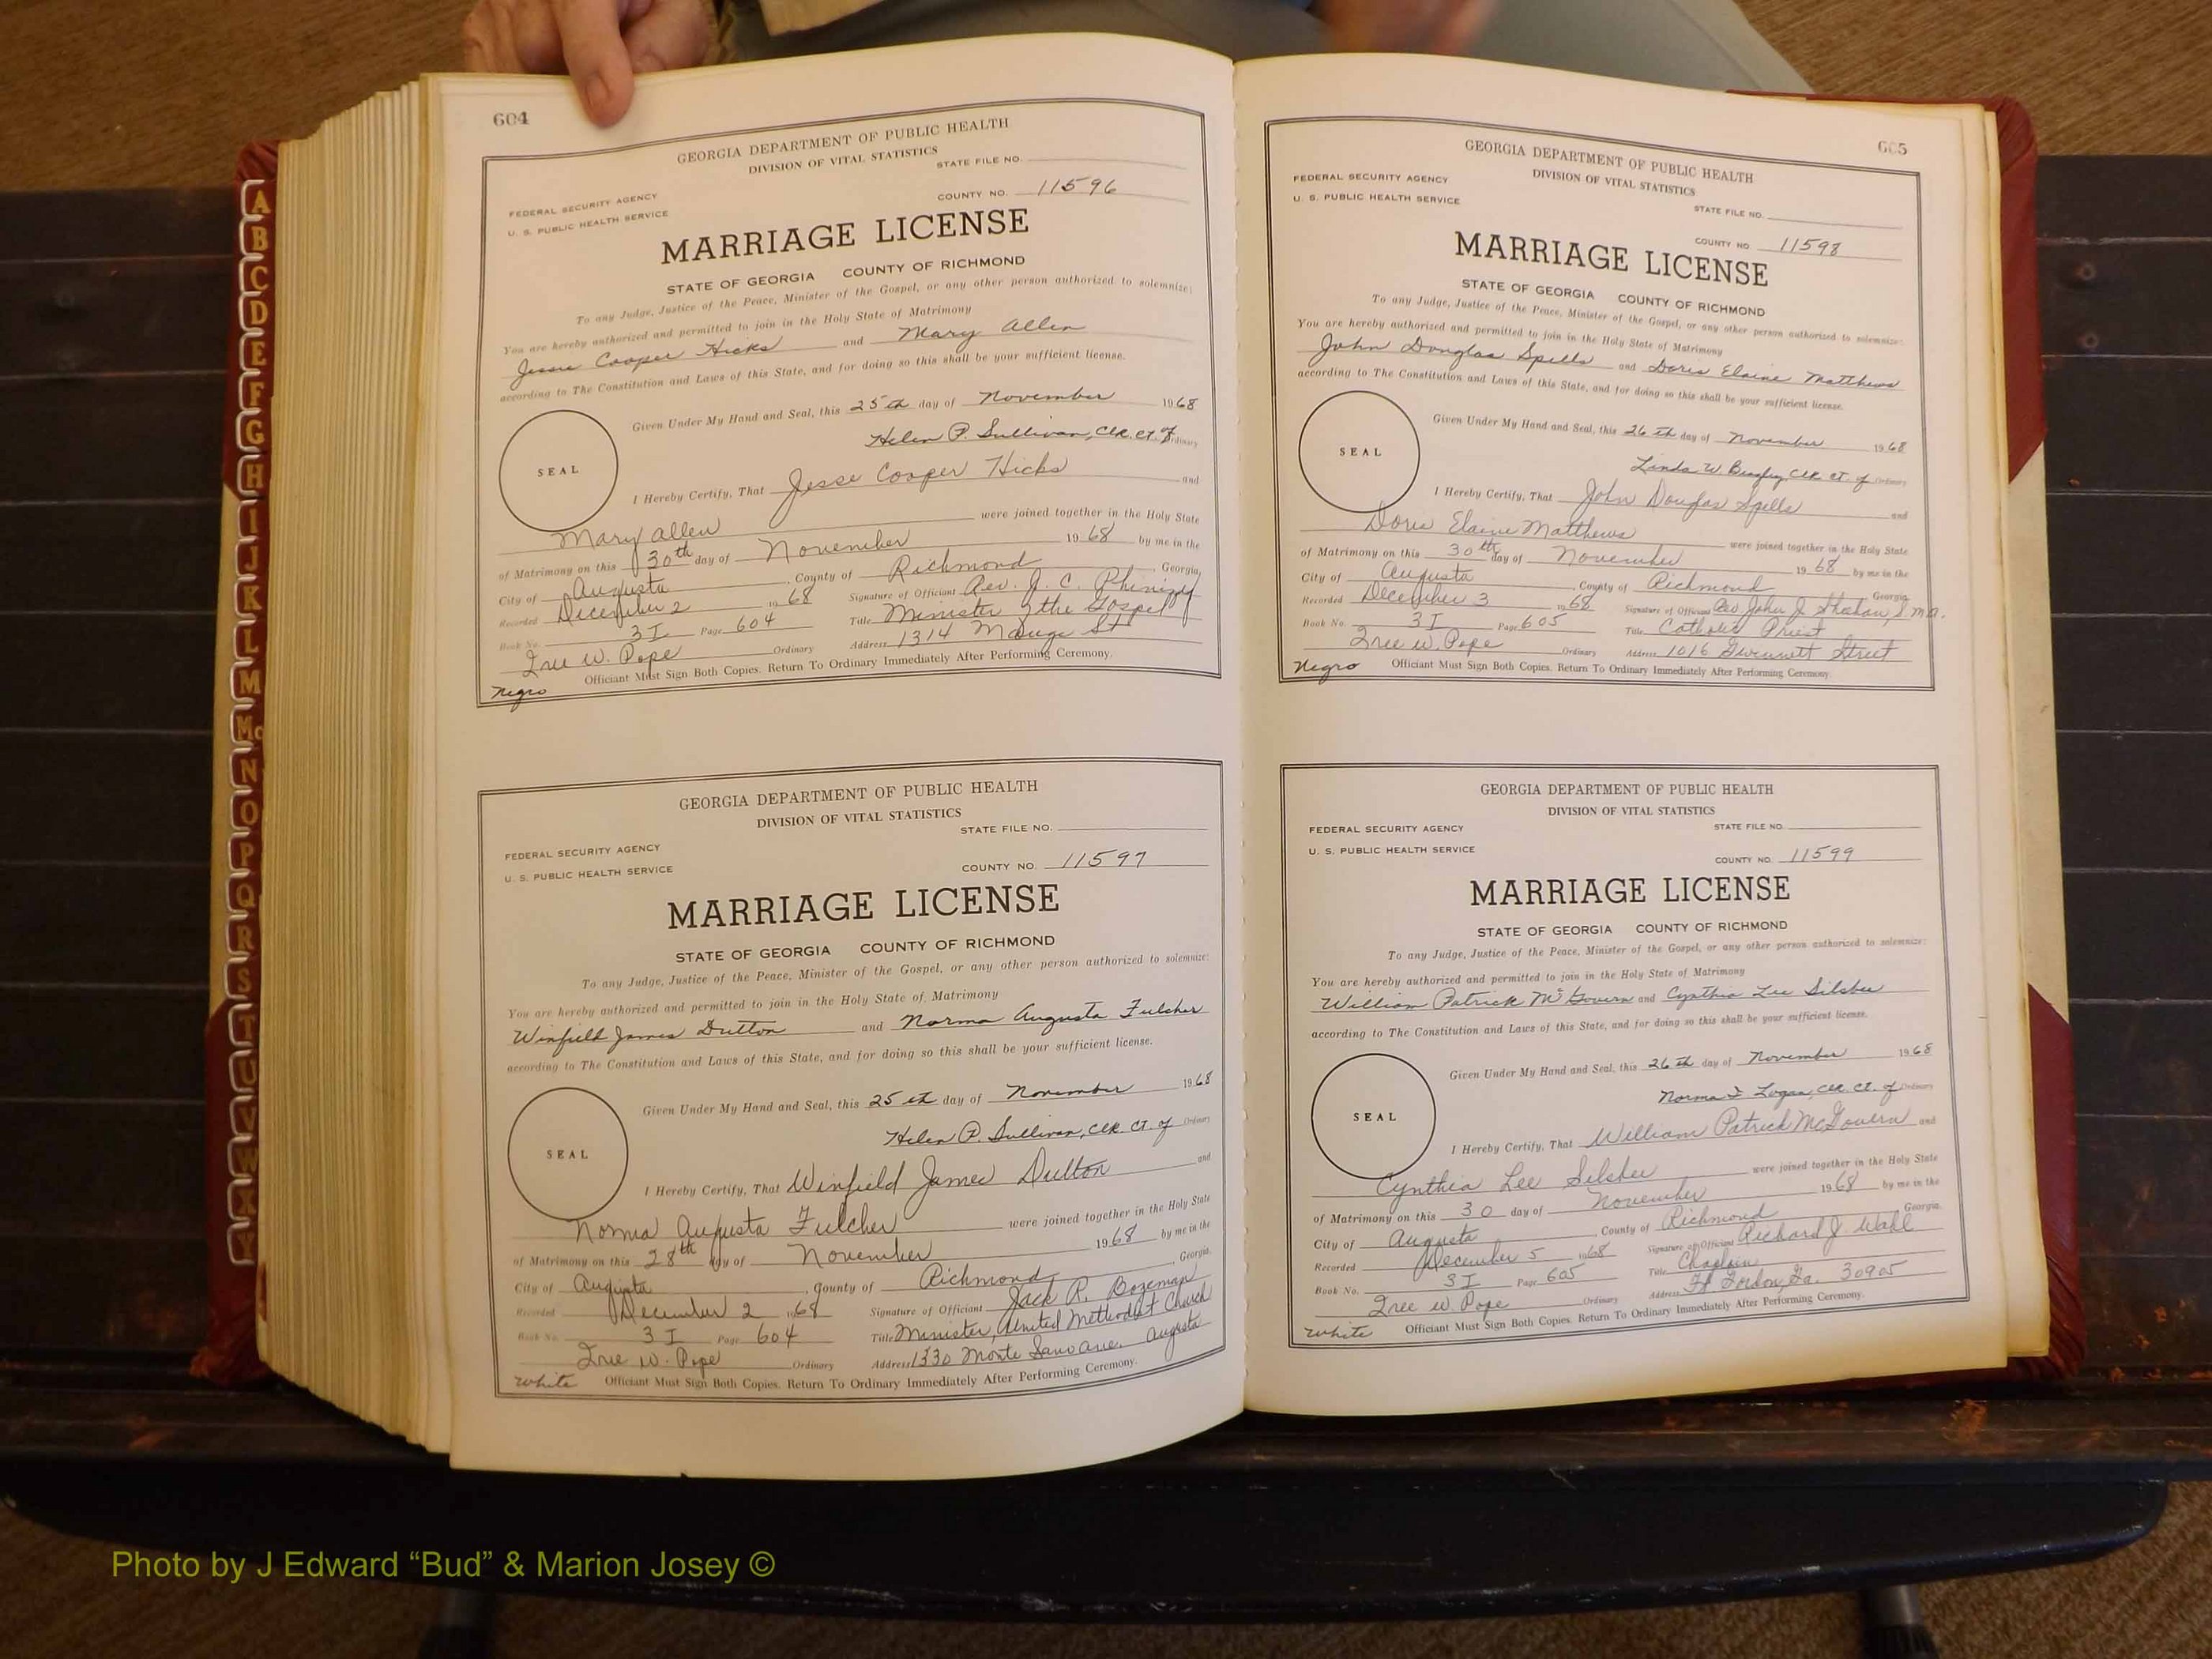 A
B
C
D
E
F
G
H
I
J
K
L
M
Mc
N
O
P
Q
R
S
T
U
V
W
X
Y
604
GEORGIA DEPARTMENT OF PUBLIC HEALTH
DIVISION OF VITAL STATISTICS
STATE FILE NO.
FEDERAL SECURITY AGENCY
U. S. PUBLIC HEALTH SERVICE
COUNTY NO. 11596
MARRIAGE LICENSE
STATE OF GEORGIA COUNTY OF RICHMOND
To any Judge, Justice of the Peace, Minister of the Gospel, or any other person authorized to solemnize:
You are hereby authorized and permitted to join in the Holy State of Matrimony
Jessie Cooper Hicks and Mary Allen
according to The Constitution and Laws of this State, and for doing so this shall be your sufficient license.
Given Under My Hand and Seal, this 25th day of November 1968
Helen P. Sullivan, Clk. Ct. of Ordinary
SEAL
I Hereby Certify, That Jesse Cooper Hicks and
Mary Allen were joined together in the Holy State
of Matrimony on this 30th day of November 1968 by me in the
City of Augusta, County of Richmond, Georgia,
Recorded December 2 1968 Signature of Officiant Rev. J. C. Phinizy
Book No. 3 I Page 604 Title Minister of the Gospel
Iree W. Pope Ordinary Address 1314 Mauge St
Negro Officiant Must Sign Both Copies. Return To Ordinary Immediately After Performing Ceremony.
GEORGIA DEPARTMENT OF PUBLIC HEALTH
DIVISION OF VITAL STATISTICS
STATE FILE NO.
FEDERAL SECURITY AGENCY
U. S. PUBLIC HEALTH SERVICE
COUNTY NO. 11597
MARRIAGE LICENSE
STATE OF GEORGIA COUNTY OF RICHMOND
To any Judge, Justice of the Peace, Minister of the Gospel, or any other person authorized to solemnize:
You are hereby authorized and permitted to join in the Holy State of Matrimony
Winfield James Dutton and Norma Augusta Fulcher
according to The Constitution and Laws of this State, and for doing so this shall be your sufficient license.
Given Under My Hand and Seal, this 25th day of November 1968
Helen P. Sullivan, Clk. Ct. of Ordinary
SEAL
I Hereby Certify, That Winfield James Dutton and
Norma Augusta Fulcher were joined together in the Holy State
of Matrimony on this 28th day of November 1968 by me in the
City of Augusta, County of Richmond, Georgia.
Recorded December 2 1968 Signature of Officiant Jack R. Bozeman
Book No. 3 I Page 604 Title Minister, United Methodist Church
Iree W. Pope Ordinary Address 1330 Monte Sano Ave. Augusta
White Officiant Must Sign Both Copies. Return To Ordinary Immediately After Performing Ceremony.
605
GEORGIA DEPARTMENT OF PUBLIC HEALTH
DIVISION OF VITAL STATISTICS
FEDERAL SECURITY AGENCY
U. S. PUBLIC HEALTH SERVICE
STATE FILE NO.
COUNTY NO. 11598
MARRIAGE LICENSE
STATE OF GEORGIA COUNTY OF RICHMOND
To any Judge, Justice of the Peace, Minister of the Gospel, or any other person authorized to solemnize:
You are hereby authorized and permitted to join in the Holy State of Matrimony
John Douglas Spells and Doris Elaine Matthews
according to The Constitution and Laws of this State, and for doing so this shall be your sufficient license.
Given Under My Hand and Seal, this 26th day of November 1968
Linda W. Clk. Ct. of Ordinary
SEAL
I Hereby Certify, That John Douglas Spells and
Doris Elaine Matthews were joined together in the Holy State
of Matrimony on this 30th day of November 1968 by me in the
City of Augusta, County of Richmond Georgia
Recorded December 3 1968 Signature of Officiant Rev. John J. S.M.A.
Book No. 3 I Page 605 Title Catholic Priest
Iree W. Pope Ordinary Address 1016 Gwinnett Street
Negro Officiant Must Sign Both Copies. Return To Ordinary Immediately After Performing Ceremony.
GEORGIA DEPARTMENT OF PUBLIC HEALTH
DIVISION OF VITAL STATISTICS
FEDERAL SECURITY AGENCY
STATE FILE NO.
U. S. PUBLIC HEALTH SERVICE
COUNTY NO. 11599
MARRIAGE LICENSE
STATE OF GEORGIA COUNTY OF RICHMOND
To any Judge, Justice of the Peace, Minister of the Gospel, or any other person authorized to solemnize:
You are hereby authorized and permitted to join in the Holy State of Matrimony
William Patrick McGovern and Cynthia Lee Silsbee
according to The Constitution and Laws of this State, and for doing so this shall be your sufficient license.
Given Under My Hand and Seal, this 26th day of November 1968
Norma F. Logan, Clk. Ct. of Ordinary
SEAL
I Hereby Certify, That William Patrick McGovern and
Cynthia Lee Silsbee were joined together in the Holy State
of Matrimony on this 30 day of November 1968 by me in the
City of Augusta, County of Richmond Georgia.
Recorded December 5 1968 Signature of Officiant Richard J. Wahl
Book No. 3 I Page 605 Title Chaplain
Iree W. Pope Ordinary Address Ft. Gordon, Ga. 30905
White Officiant Must Sign Both Copies. Return To Ordinary Immediately After Performing Ceremony.
Photo by J Edward “Bud” & Marion Josey ©